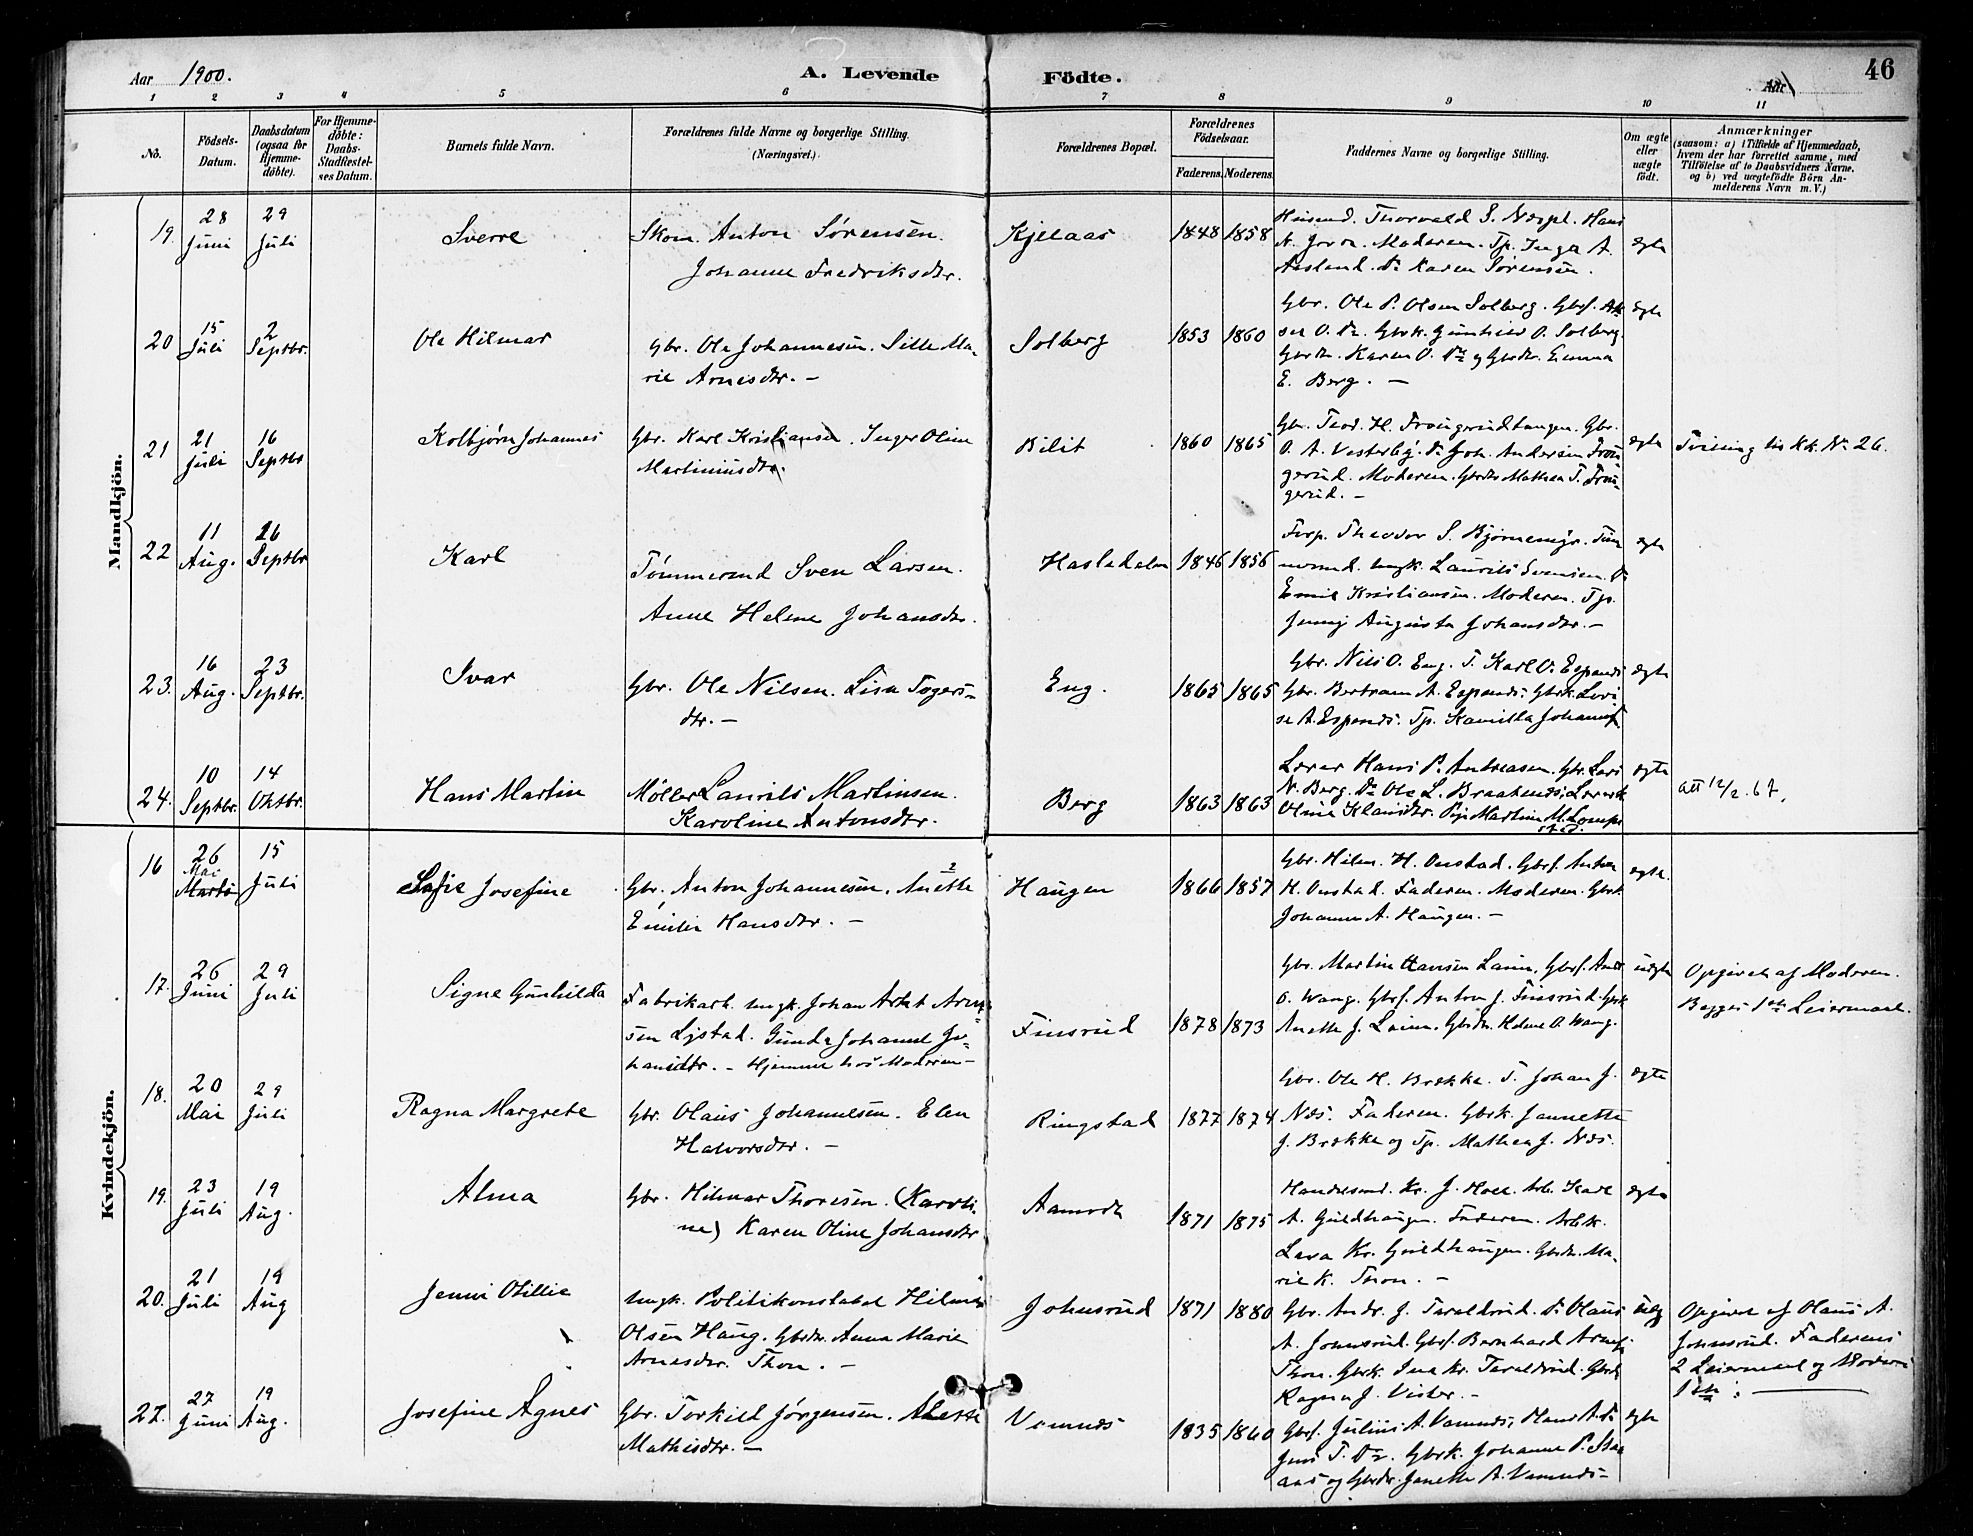 Aar 1900. A. Levende Födte. Aar 46
1 2 3 4 5 6 7 8 9 10 11
No.
Födsels-Datum.
Daabsdatum (ogsaa for Hjemme-döbte).
For Hjemme-döbte: Daabs-Stadfæstel-ses Datum.
Barnets fulde Navn.
Forældrenes fulde Navne og borgerlige Stilling. (Næringsvei.)
Forældrenes Bopæl.
Forældrenes Födselsaar.
Faderens. Moderens.
Faddernes Navne og borgerlige Stilling.
Om ægte eller uægte født.
Anmærkninger (saasom: a) i Tilfælde af Hjemmedaab, hvem der har forrettet samme, med Tilföielse af to Daabsvidners Navne. og b) ved uægtefödte Börn An-melderens Navn m. V.)
Mandkjön.
19. 28 Juni 29 Juli Sverre
Skom. Anton Sørensen.
Johanne Fredriksdtr.
Kjelaas 1848 1858
Moderen. Tp. Inga A.
Aasland. Do Karen Sørensen.
ægte
20 15 Juli 2 Septbr. Ole Hilmar
Gbr. Ole Johannesen. Sille Ma-
rie Arnesdtr. –
Solberg 1853 1860
Gbr. Ole P. Olsen Solberg. Gbrs.
O. Do. Gbrk. Gunhild O. Solberg.
Gbrdtr. Karen O. Do og Gbrdtr. Emma
E. Berg. –
ægte
21 21 Juli 16 Septbr Kolbjørn Johannes
Gbr. Karl Kristiansen. Inger Oline
Martiniusdtr.
Bilit 1860 1865
Gbr. Teod. H. Frøugerudtangen. Gbr.
O. A. Vesterby. Do Joh. Andersen
Moderen. Gbrdtr Mathea T.
gerud. –
ægte
Tvilling til Kk. No 26.
22 11 Aug. 16 Septbr Karl
Tømmermd Sven Larsen.
Anne Helene Johansdtr.
Hasledalen 1846 1856
Forp. Theodor S. Bjørnemyr.
ungk. Laurits Svensen. Do
Emil Kristiansen. Moderen. Tp.
Jenny Augusta Johansdtr. –
ægte
23. 16 Aug. 23 Septbr. Ivar
Gbr. Ole Nilsen. Lisa Togers-
dtr. –
Eng. 1865 1865
Gbr. Nils O. Eng. T. Karl O. Espends
Gbr. Bertram A. Espends. Gbrk. Lovi
se A. Espends. Tp. Kamilla Johannes
ægte
24. 10 Septbr. 14 Oktbr. Hans Martin
Møller Laurits Martinsen.
Karoline Antonsdtr.
Berg 1863 1863
Lærer Hans P. Andreasen. Gbr. Lars
N. Berg. Do Ole L. Braatends. Lærerk.
Oline Klausdtr. Pige Martine M.
ægte
att 12/2. 67.
Kvindekjön.
16 26 Mai Marts 15 Juli Sofie Josefine
Gbr. Anton Johannesen. Anette
Emilie Hansdtr. –
Haugen 1866 1857
Gbr. Hilm. H. Onstad. Gbrs. Anton
H. Onstad. Faderen. Moderen. Gbrk.
Johanne A. Haugen. –
ægte.
17. 26 Juni 29 Juli Signe Gunhilda
Fabrikarb. ungk. Johan Arnt Arne-
sen Ljstad. Gunda Johanne Jo-
hansdtr. – Hjemme hos Moderen –
Finsrud 1878 1873
Gbr. Martin Hansen Laim. Gbrs.
O. Wang. Gbrs. Anton J. Finsrud. Gbrk
Anette J. Laim. Gbrdtr. Helene O. Wang.
uægte
Opgivet af Moderen.
Begges 1ste Leiermaal.
18. 20 Mai 29 Juli Ragna Margrete
Gbr. Olaus Johannesen. Elen
Halvorsdtr. –
Ringstad 1877 1874
Gbr. Ole H. Brække. T. Johan J.
Næs. Faderen. Gbrk. Jannette
J. Brække og Tp. Mathea J. Næs.
ægte
19. 23 Juli 19 Aug. Alma
Gbr. Hilmar Thoresen. (Karoli-
ne) Karen Oline Johansdtr
Aamodt 1871 1875
Handelsmd. Kr. J. Moen. Arb. Karl
A. Guldhaugen. Faderen. Arbk.
Lava Kr. Guldhaugen. Gbrdtr. Ma-
rie K. Thon. –
ægte
20. 21 Juli 19 Aug Jenni Otillie
Ungk. Politikonstabel Hilmar
Olsen Haug. Gbrdtr. Anna Marie
Arnesdtr. Thon. –
Johnsrud 1871 1880
Gbr. Andr. J. Taraldrud. Do Olaus
A. Johnsrud. Gbrs. Bernhard Arnes.
Thon. Gbrk. Ina Kr. Taraldrud. Gbrdtr
Ragna J. Vister. –
uæg
Opgivet af Olaus A.
Johnsrud. Faderens
2 Leiermaal og Moderens
1ste.
27. 27 Juni 19 Aug. Josefine Agnes
Gbr. Torkild Jørgensen. Alette
Mathisdtr. –
Vamnes 1835 1860
Gbrs. Julius A. Vamnes, Hans A. Do
Jens T. Do. Gbrk. Johanne P.
aas og Gbrdtr. Janette A. Vamnes –
ægte